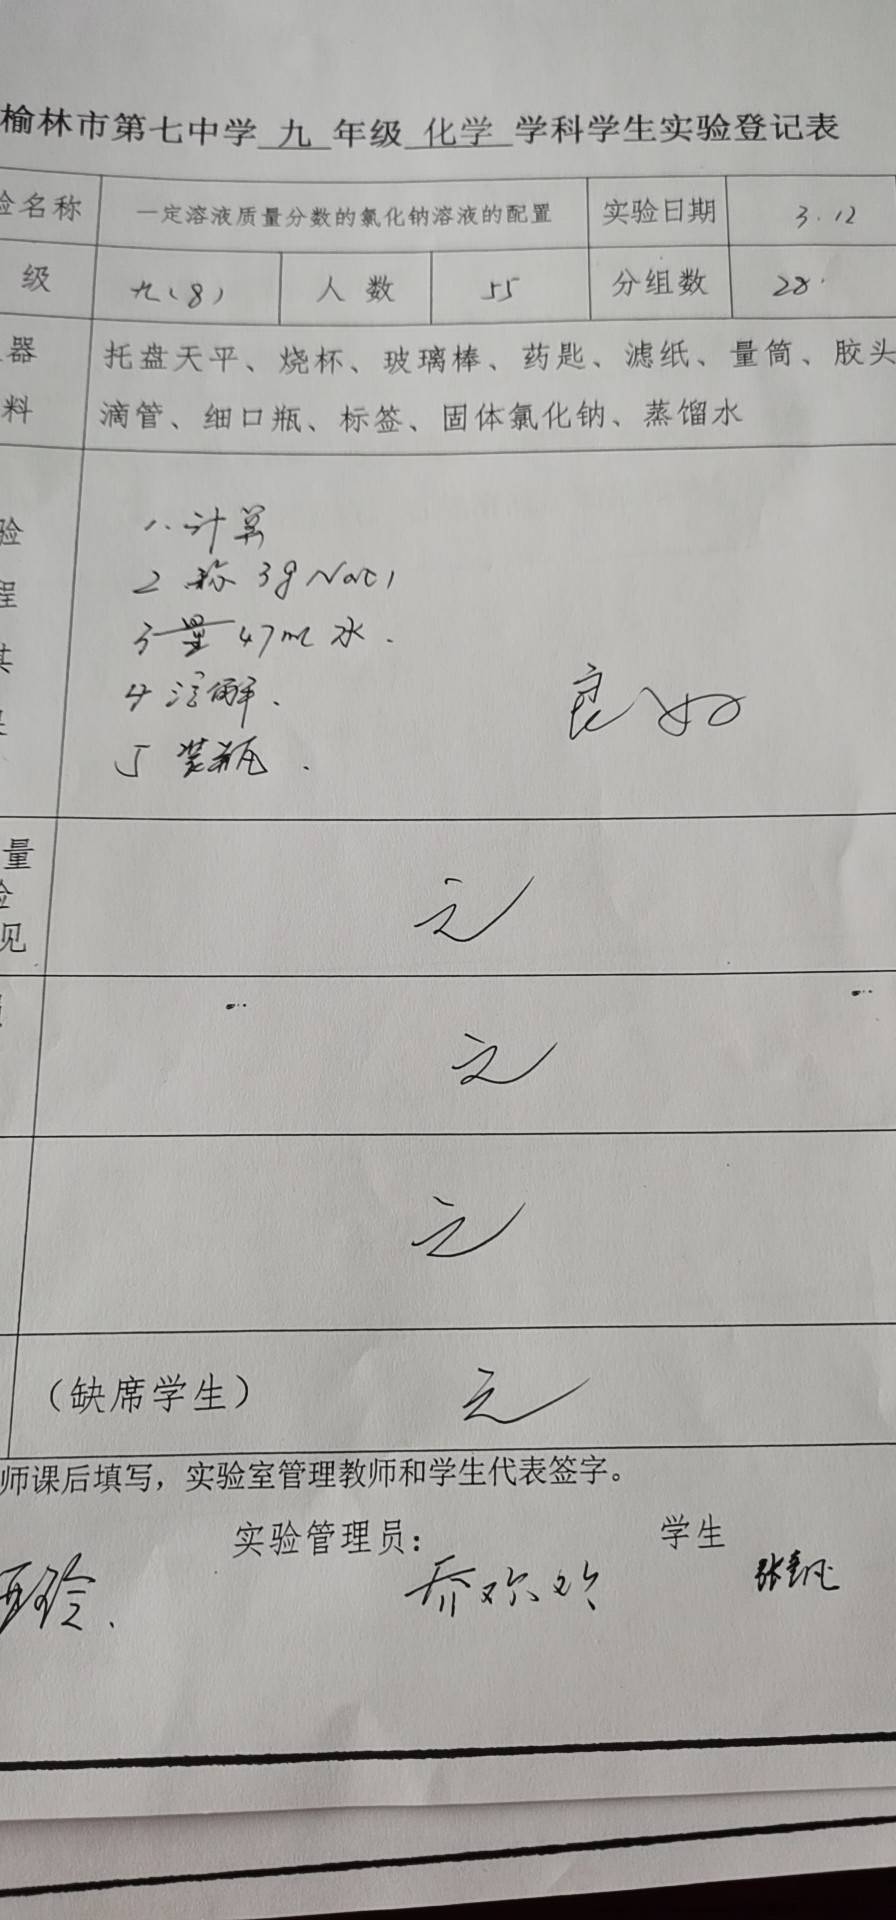 榆林市第七中学 九 年级 化学 学科学生实验登记表
验名称 一定溶液质量分数的氯化钠溶液的配置 实验日期 3.12
级 九(8) 人数 55 分组数 28
器 托盘天平、烧杯、玻璃棒、药匙、滤纸、量筒、胶头
料 滴管、细口瓶、标签、固体氯化钠、蒸馏水
验
程
其
1.计算
2 称 3g NaCl
3 量 47ml 水.
4 溶解.
5 装瓶.
良好
量
验
见
无
无
无
(缺席学生) 无
师课后填写，实验室管理教师和学生代表签字。
实验管理员： 学生
乔欢欢